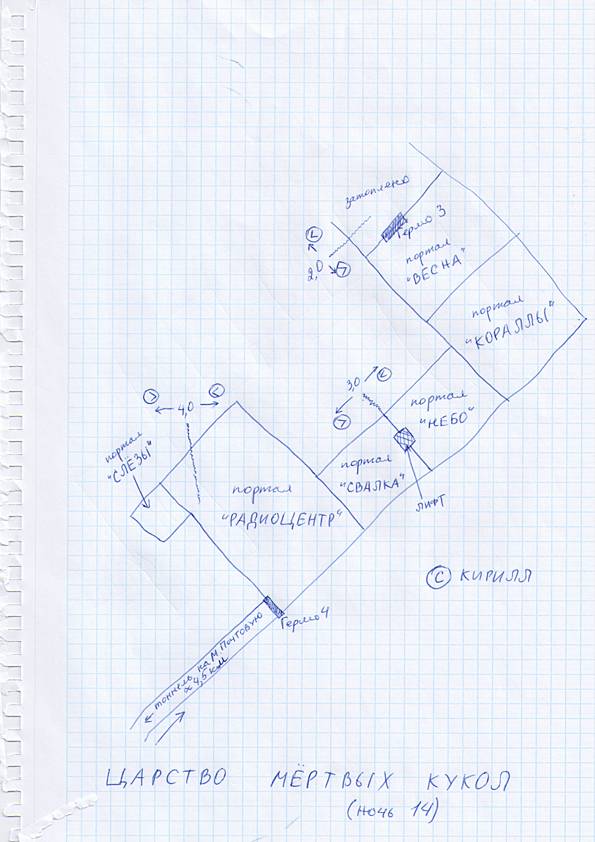 затоплено
Гермо 3
портал
"ВЕСНА"
2,0
>
<
портал
"КОРАЛЛЫ"
3,0
<
>
портал
"НЕБО"
>
<
4,0
портал
"СЛЁЗЫ"
портал
"РАДИОЦЕНТР"
портал
"СВАЛКА"
ЛИФТ
© КИРИЛЛ
Гермо 4
тоннель на М. Почтовую
≈ 4,5 км
ЦАРСТВО МЁРТВЫХ КУКОЛ
(ночь 14)